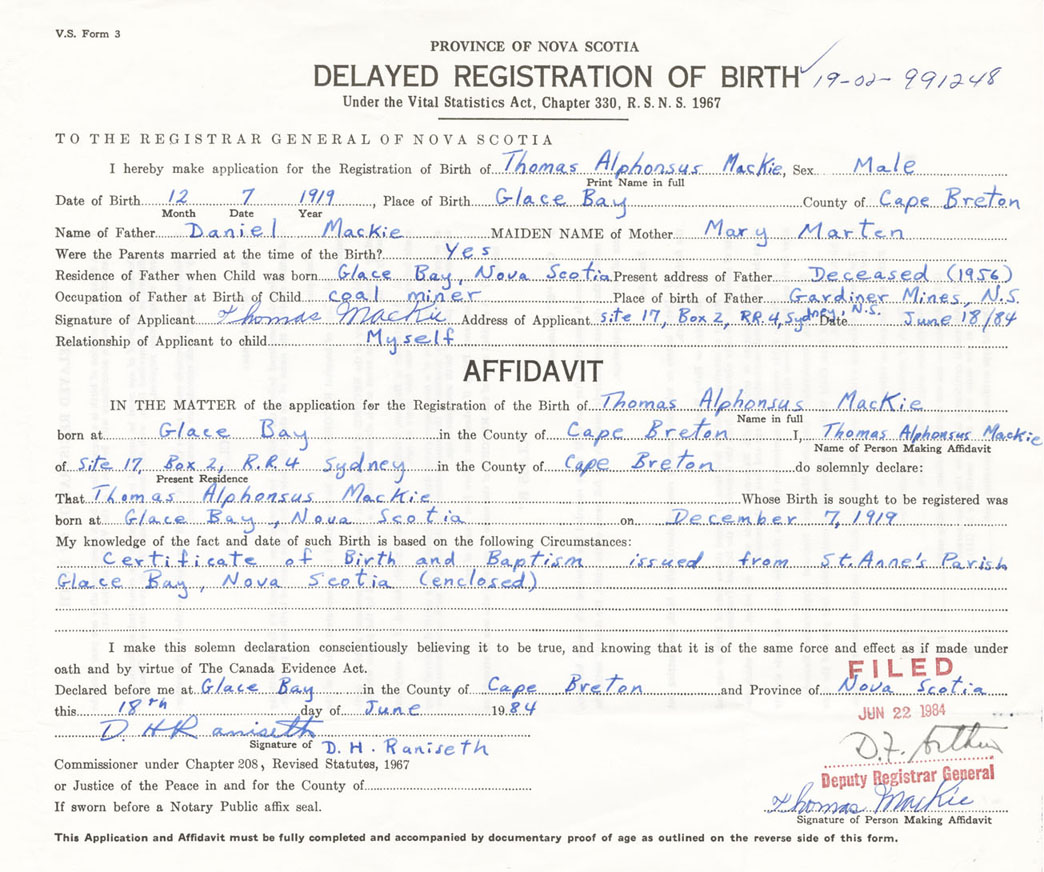 V.S. Form 3
PROVINCE OF NOVA SCOTIA
DELAYED REGISTRATION OF BIRTH 19-02-991248
Under the Vital Statistics Act, Chapter 330, R.S.N.S. 1967
TO THE REGISTRAR GENERAL OF NOVA SCOTIA
I hereby make application for the Registration of Birth of Thomas Alphonsus MacKie, Sex Male
Print Name in full
Date of Birth 12 7 1919, Place of Birth Glace Bay County of Cape Breton
Month Date Year
Name of Father Daniel MacKie MAIDEN NAME of Mother Mary Marten
Were the Parents married at the time of the Birth? Yes
Residence of Father when Child was born Glace Bay, Nova Scotia Present address of Father Deceased (1956)
Occupation of Father at Birth of Child coal miner Place of birth of Father Gardiner Mines, N.S.
Signature of Applicant Thomas MacKie Address of Applicant Site 17, Box 2, RR.4, Sydney, N.S. Date June 18/84
Relationship of Applicant to child Myself
AFFIDAVIT
IN THE MATTER of the application for the Registration of the Birth of Thomas Alphonsus MacKie
Name in full
born at Glace Bay in the County of Cape Breton I, Thomas Alphonsus MacKie
Name of Person Making Affidavit
of Site 17, Box 2, R.R.4 Sydney in the County of Cape Breton do solemnly declare:
Present Residence
That Thomas Alphonsus MacKie Whose Birth is sought to be registered was
born at Glace Bay, Nova Scotia on December 7, 1919
My knowledge of the fact and date of such Birth is based on the following Circumstances:
Certificate of Birth and Baptism issued from St. Anne's Parish
Glace Bay, Nova Scotia (enclosed)
I make this solemn declaration conscientiously believing it to be true, and knowing that it is of the same force and effect as if made under
oath and by virtue of The Canada Evidence Act.
FILED
Declared before me at Glace Bay in the County of Cape Breton and Province of Nova Scotia
this 18th day of June 1984
JUN 22 1984
D. H. Raniseth
Signature of D. H. Raniseth
D.F. Arthur
Commissioner under Chapter 208, Revised Statutes, 1967
Deputy Registrar General
or Justice of the Peace in and for the County of
Thomas MacKie
If sworn before a Notary Public affix seal.
Signature of Person Making Affidavit
This Application and Affidavit must be fully completed and accompanied by documentary proof of age as outlined on the reverse side of this form.